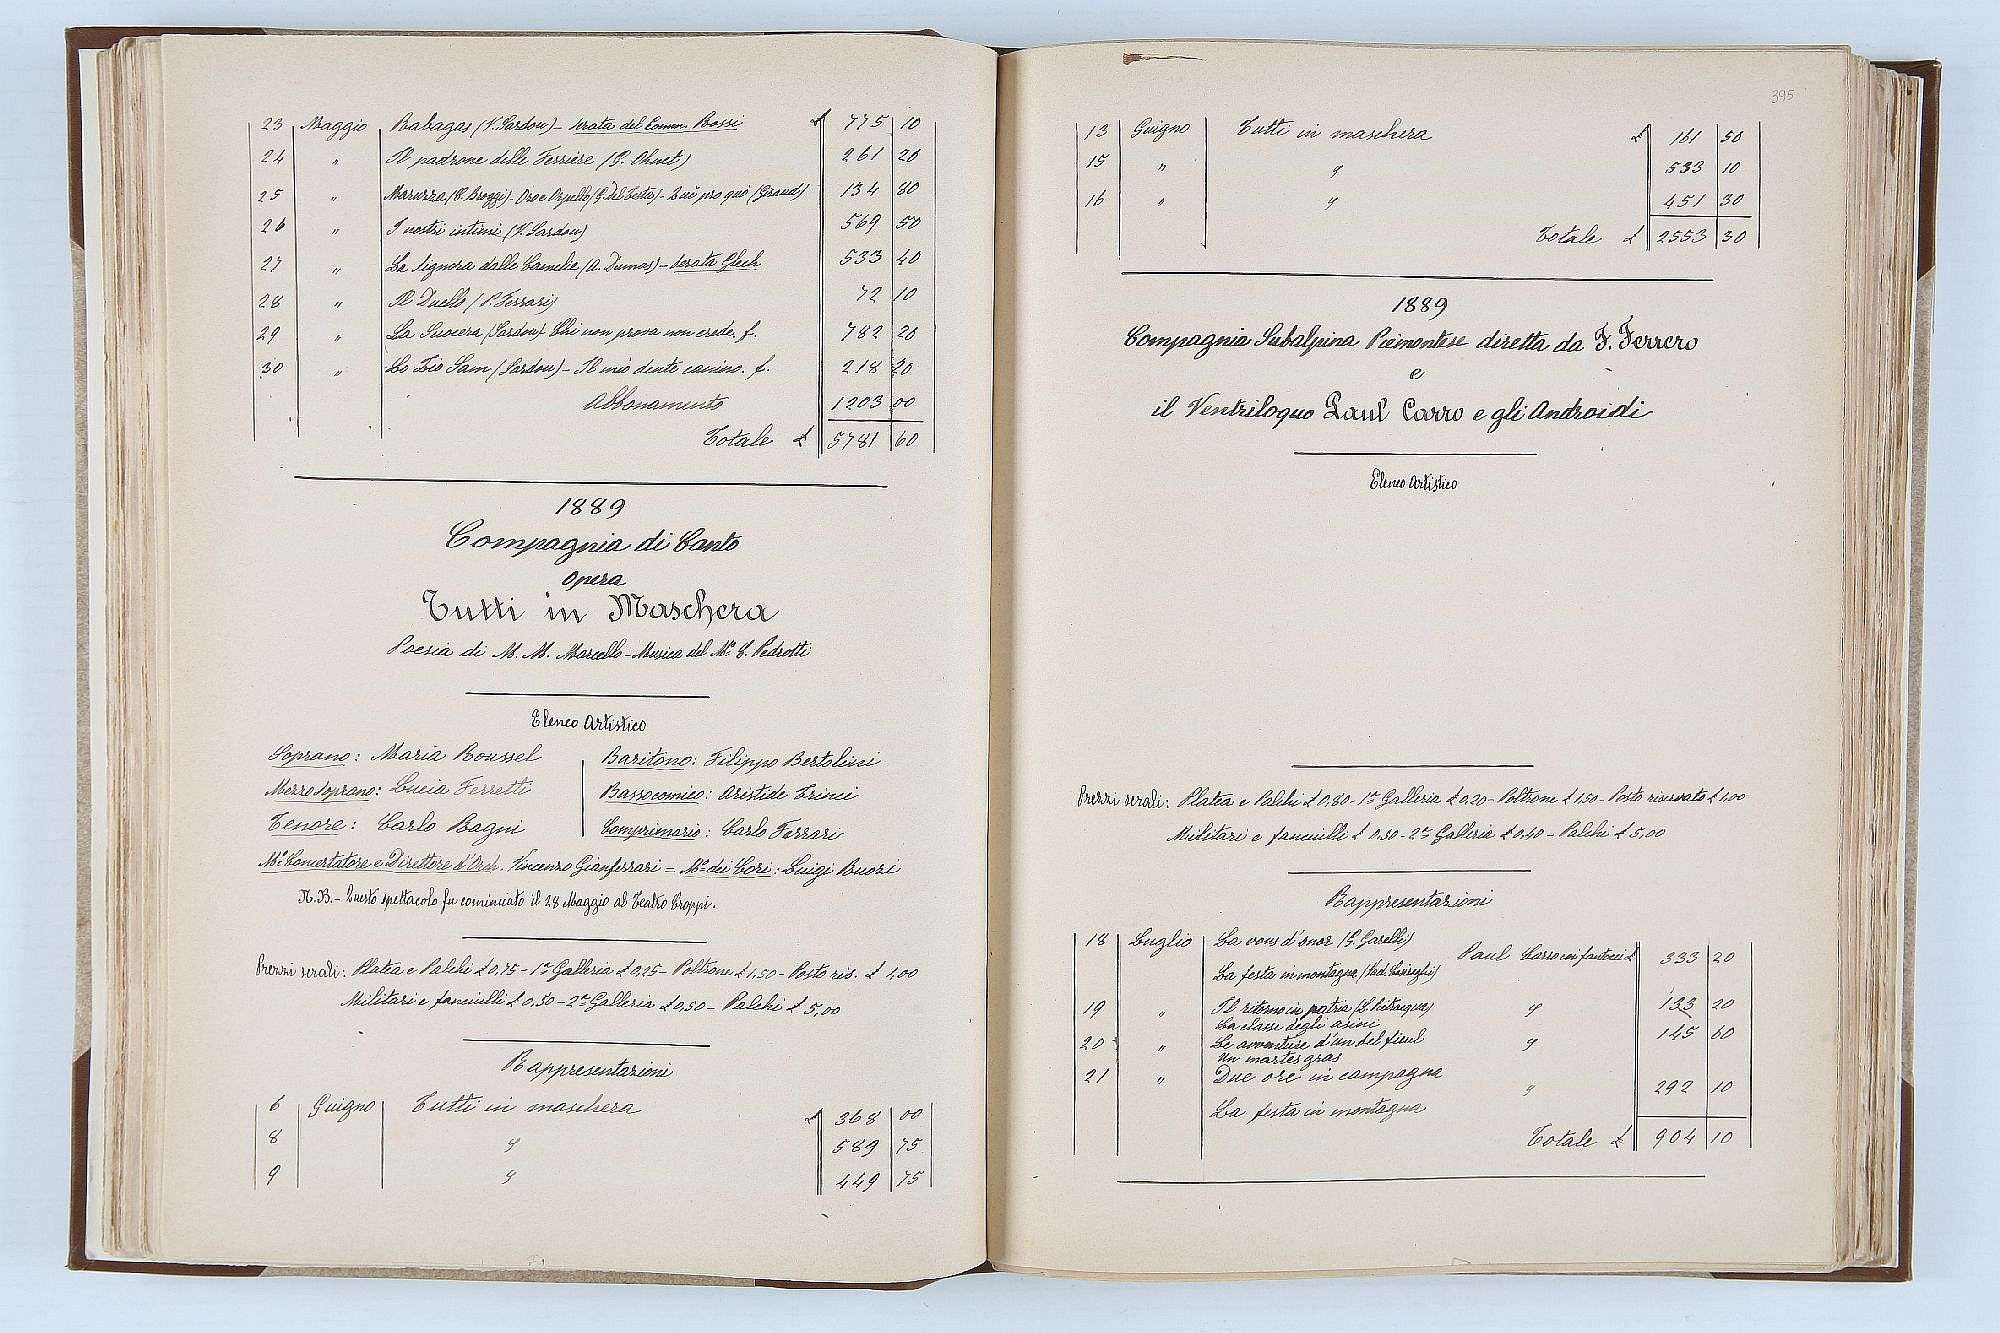 23 Maggio Rabagas (V. Sardou) - serata del Comm. Rossi £ 775 10
24 " Il padrone delle Ferriere (G. Ohnet) 261 20
25 " Maruzza - Oro e Orpello (G. Del Testa) - Qui pro quò 134 80
26 " I nostri intimi (V. Sardou) 569 50
27 " La Signora dalle Camelie (A. Dumas) - serata Glech 533 40
28 " Il Duello (P. Ferrari) 72 10
29 " La Suocera (Sardou) Chi non prova non crede. f. 782 20
30 " Lo Zio Sam (Sardou) - Il mio dente canino. f. 218 20
Abbonamento 1203 00
Totale £ 5781 60
1889
Compagnia di Canto
Opera
Tutti in Maschera
Poesia di M. M. Marcello - Musica del Mº C. Pedrotti
Elenco Artistico
Soprano: Maria Roussel
Mezzo Soprano: Lucia Ferretti
Tenore: Carlo Bagni
Baritono: Filippo Bertolini
Basso comico: Aristide Trinci
Comprimario: Carlo Ferrari
Mº Concertatore e Direttore d'Orch. Vincenzo Gianferrari = Mº dei Cori: Luigi Ruozi
N.B. - Questo spettacolo fu cominciato il 28 Maggio al Teatro Groppi.
Prezzi serali: Platea e Palchi £ 0,75 - 1ª Galleria £ 0,25 - Poltrone £ 1,50 - Posto ris. £ 1,00
Militari e fanciulli £ 0,50 - 2ª Galleria £ 0,50 - Palchi £ 5,00
Rappresentazioni
6 Guigno Tutti in maschera £ 368 00
8 " 589 75
9 " 449 75
395
13 Guigno Tutti in maschera £ 161 50
15 " " 533 10
16 " " 451 30
Totale £ 2553 30
1889
Compagnia Subalpina Piemontese diretta da F. Ferrero
e
il Ventriloquo Paul Carro e gli Androidi
Elenco Artistico
Prezzi serali: Platea e Palchi £ 0,80 - 1ª Galleria £ 0,20 - Poltrone £ 1,50 - Posto riservato £ 1,00
Militari e fanciulli £ 0,50 - 2ª Galleria £ 0,40 - Palchi £ 5,00
Rappresentazioni
18 Luglio La vous d'onor (G. Garelli)
Paul Carro coi fantocci £ 333 20
La festa in montagna
19 " Il ritorno in patria (L. Pietracqua) " 133 20
La classe degli asini
20 " Le avventure d'un bel fieul " 145 60
Un martes gras
21 " Due ore in campagna " 292 10
La festa in montagna
Totale £ 904 10